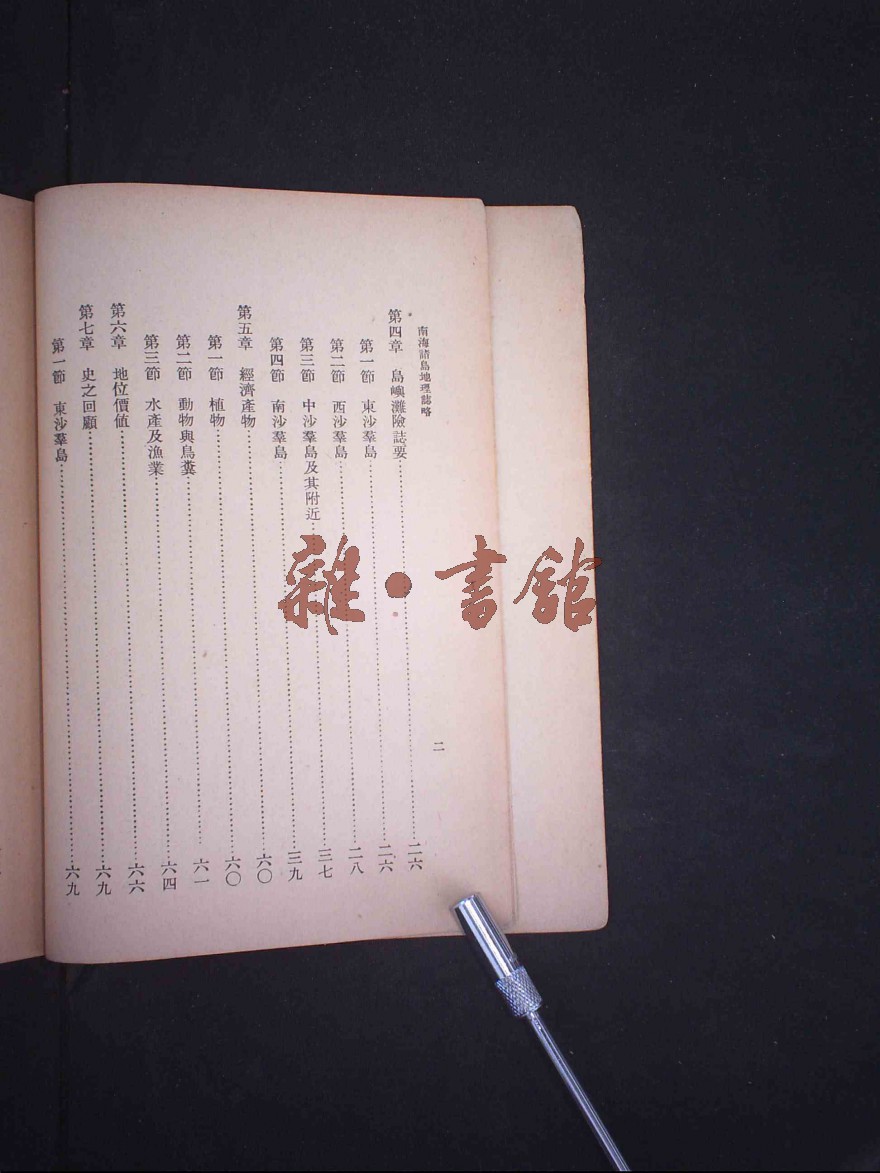 南海諸島地理誌略
二
第四章 島嶼灘險誌要……二六
第一節 東沙羣島……二六
第二節 西沙羣島……二八
第三節 中沙羣島及其附近……三七
第四節 南沙羣島……三九
第五章 經濟產物……六〇
第一節 植物……六〇
第二節 動物與鳥糞……六一
第三節 水產及漁業……六四
第六章 地位價值……六六
第七章 史之回顧……六九
第一節 東沙羣島……六九
雜·書館